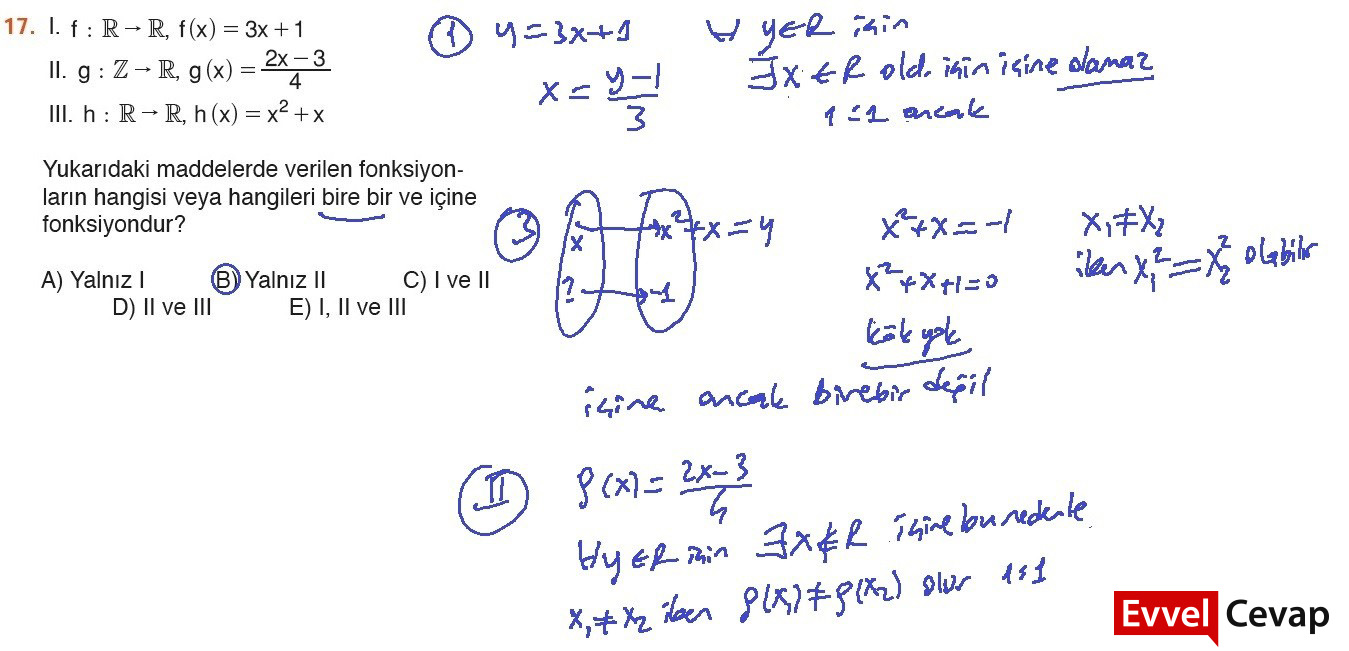 17. I. f : ℝ → ℝ, f(x) = 3x + 1
II. g : ℤ → ℝ, g(x) = (2x − 3)/4
III. h : ℝ → ℝ, h(x) = x² + x
Yukarıdaki maddelerde verilen fonksiyon-
ların hangisi veya hangileri bire bir ve içine
fonksiyondur?
A) Yalnız I B) Yalnız II C) I ve II
D) II ve III E) I, II ve III
① y = 3x+1 ∀ y∈R için
x = (y−1)/3 ∃x ∈ R old. için içine olamaz
1:1 ancak
③ x x²+x = y x²+x = −1 x₁≠x₂
? −1 x²+x+1=0 iken x₁² = x₂² olabilir
kök yok
içine ancak birebir değil
II g(x) = (2x−3)/4
∀y∈R için ∃x∉R içine bu nedenle
x₁≠x₂ iken g(x₁)≠g(x₂) olur 1:1
Evvel Cevap